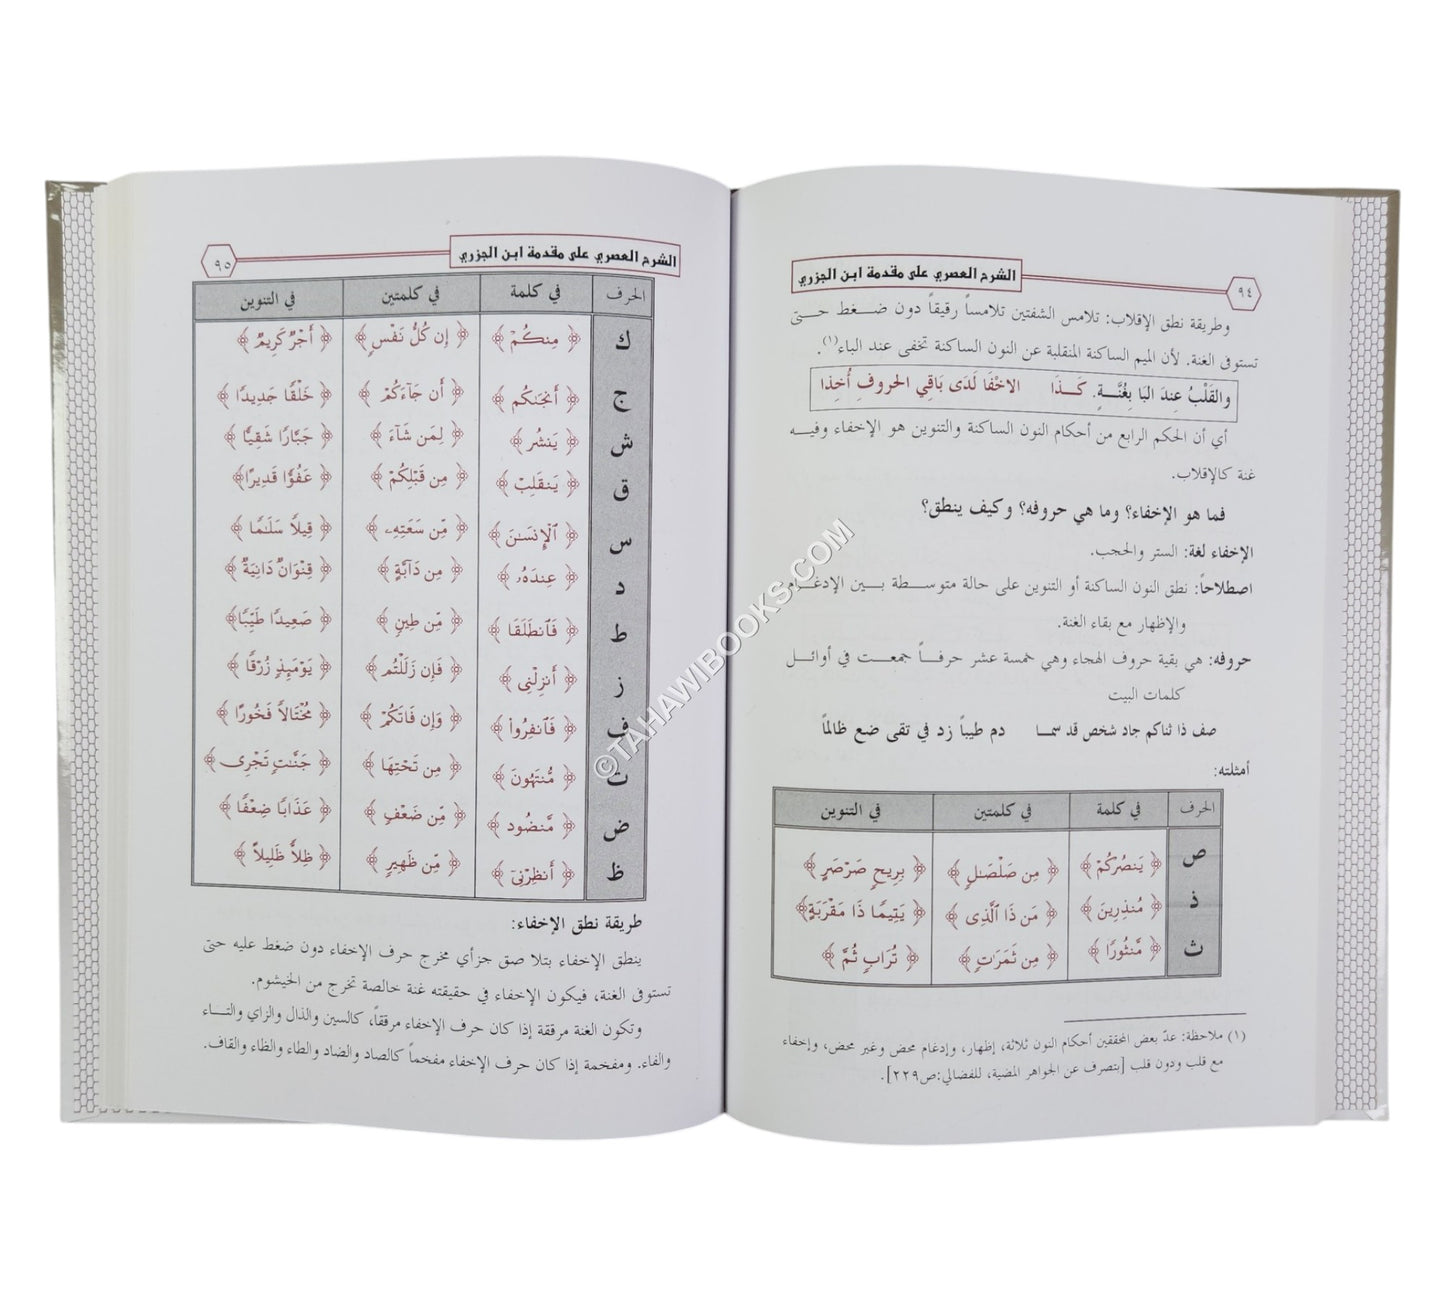 الشرح العصري على مقدمة ابن الجزري
٩٤
وطريقة نطق الإقلاب: تلامس الشفتين تلامساً رقيقاً دون ضغط حتى
تستوفى الغنة. لأن الميم الساكنة المنقلبة عن النون الساكنة تخفى عند الباء(١).
والقَلْبُ عِندَ البَا بِغُنَّـةٍ. كَـذَا الاخْفَا لَدَى بَاقِي الحروفِ أُخِذَا
أي أن الحكم الرابع من أحكام النون الساكنة والتنوين هو الإخفاء وفيه
غنة كالإقلاب.
فما هو الإخفاء؟ وما هي حروفه؟ وكيف ينطق؟
الإخفاء لغة: الستر والحجب.
اصطلاحاً: نطق النون الساكنة أو التنوين على حالة متوسطة بين الإدغام
والإظهار مع بقاء الغنة.
حروفه: هي بقية حروف الهجاء وهي خمسة عشر حرفاً جمعت في أوائل
كلمات البيت
صف ذا ثناكم جاد شخص قد سما دم طيباً زد في تقى ضع ظالماً
أمثلته:
الحرف في كلمة في كلمتين في التنوين
ص ﴿ يَنصُرْكُمْ ﴾ ﴿ مِن صَلْصَٰلٍ ﴾ ﴿ بِرِيحٍ صَرْصَرٍ ﴾
ذ ﴿ مُنذِرِينَ ﴾ ﴿ مَن ذَا ٱلَّذِى ﴾ ﴿ يَتِيمًا ذَا مَقْرَبَةٍ ﴾
ث ﴿ مَّنثُورًا ﴾ ﴿ مِن ثَمَرَٰتٍ ﴾ ﴿ تُرَابٍ ثُمَّ ﴾
(١) ملاحظة: عدّ بعض المحققين أحكام النون ثلاثة، إظهار، وإدغام محض وغير محض، وإخفاء
مع قلب ودون قلب [بتصرف عن الجواهر المضية، للفضالي:ص٢٢٩].
الشرح العصري على مقدمة ابن الجزري
٩٥
الحرف في كلمة في كلمتين في التنوين
ك ﴿ مِنكُمْ ﴾ ﴿ إِن كُلُّ نَفْسٍ ﴾ ﴿ أَجْرٌ كَرِيمٌ ﴾
ج ﴿ أَنجَىٰكُم ﴾ ﴿ أَن جَآءَكُمْ ﴾ ﴿ خَلْقًا جَدِيدًا ﴾
ش ﴿ يَنشُر ﴾ ﴿ لِمَن شَآءَ ﴾ ﴿ جَبَّارًا شَقِيًّا ﴾
ق ﴿ يَنقَلِبْ ﴾ ﴿ مِن قَبْلِكُمْ ﴾ ﴿ عَفُوًّا قَدِيرًا ﴾
س ﴿ ٱلْإِنسَٰنَ ﴾ ﴿ مِّن سَعَتِهِۦ ﴾ ﴿ قِيلًا سَلَٰمًا ﴾
د ﴿ عِندَهُۥ ﴾ ﴿ مِن دَآبَّةٍ ﴾ ﴿ قِنْوَانٌ دَانِيَةٌ ﴾
ط ﴿ فَٱنطَلَقَا ﴾ ﴿ مِّن طِينٍ ﴾ ﴿ صَعِيدًا طَيِّبًا ﴾
ز ﴿ أَنزِلْنِى ﴾ ﴿ فَإِن زَلَلْتُم ﴾ ﴿ يَوْمَئِذٍ زُرْقًا ﴾
ف ﴿ فَٱنفِرُوا۟ ﴾ ﴿ وَإِن فَاتَكُمْ ﴾ ﴿ مُخْتَالًا فَخُورًا ﴾
ت ﴿ مُّنتَهُونَ ﴾ ﴿ مِن تَحْتِهَا ﴾ ﴿ جَنَّٰتٍ تَجْرِى ﴾
ض ﴿ مَّنضُود ﴾ ﴿ مِّن ضَعْفٍ ﴾ ﴿ عَذَابًا ضِعْفًا ﴾
ظ ﴿ أَنظِرْنِىٓ ﴾ ﴿ مِّن ظَهِيرٍ ﴾ ﴿ ظِلًّا ظَلِيلًا ﴾
طريقة نطق الإخفاء:
ينطق الإخفاء بتلا صق جزأي مخرج حرف الإخفاء دون ضغط عليه حتى
تستوفى الغنة، فيكون الإخفاء في حقيقته غنة خالصة تخرج من الخيشوم.
وتكون الغنة مرققة إذا كان حرف الإخفاء مرققاً، كالسين والذال والزاي والتاء
والفاء. ومفخمة إذا كان حرف الإخفاء مفخماً كالصاد والضاد والطاء والظاء والقاف.
©TAHAWIBOOKS.COM